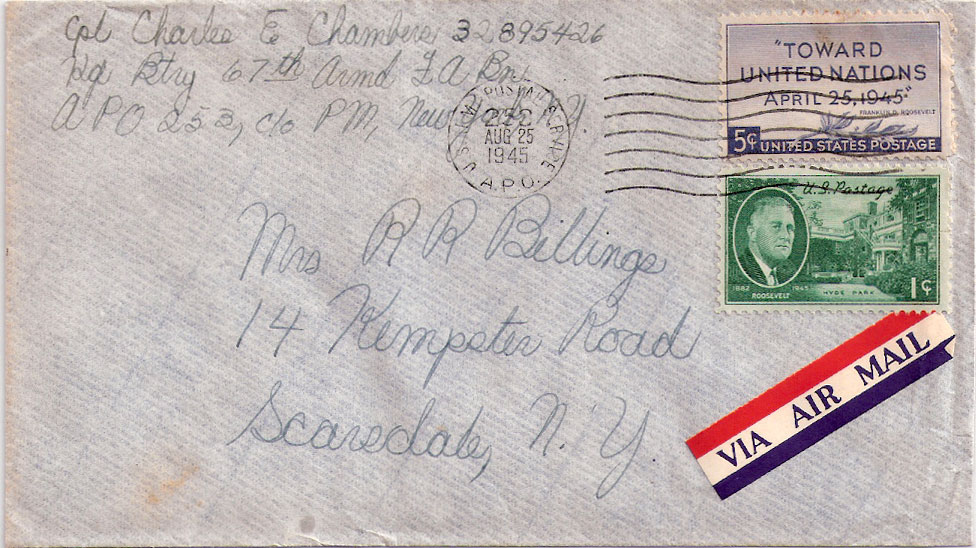 Cpl Charles E Chambers 32895426
Hq Btry 67th Armd F A Bn.
A P O 253, c/o PM, New York, N. Y.
U.S. ARMY POSTAL SERVICE
AUG 25
1945
A.P.O.
"TOWARD
UNITED NATIONS
APRIL 25, 1945"
FRANKLIN D. ROOSEVELT
5¢ UNITED STATES POSTAGE
U.S. Postage
1882 1945
ROOSEVELT
HYDE PARK
1¢
Mrs R R Billings
14 Kempster Road
Scarsdale, N. Y.
VIA AIR MAIL